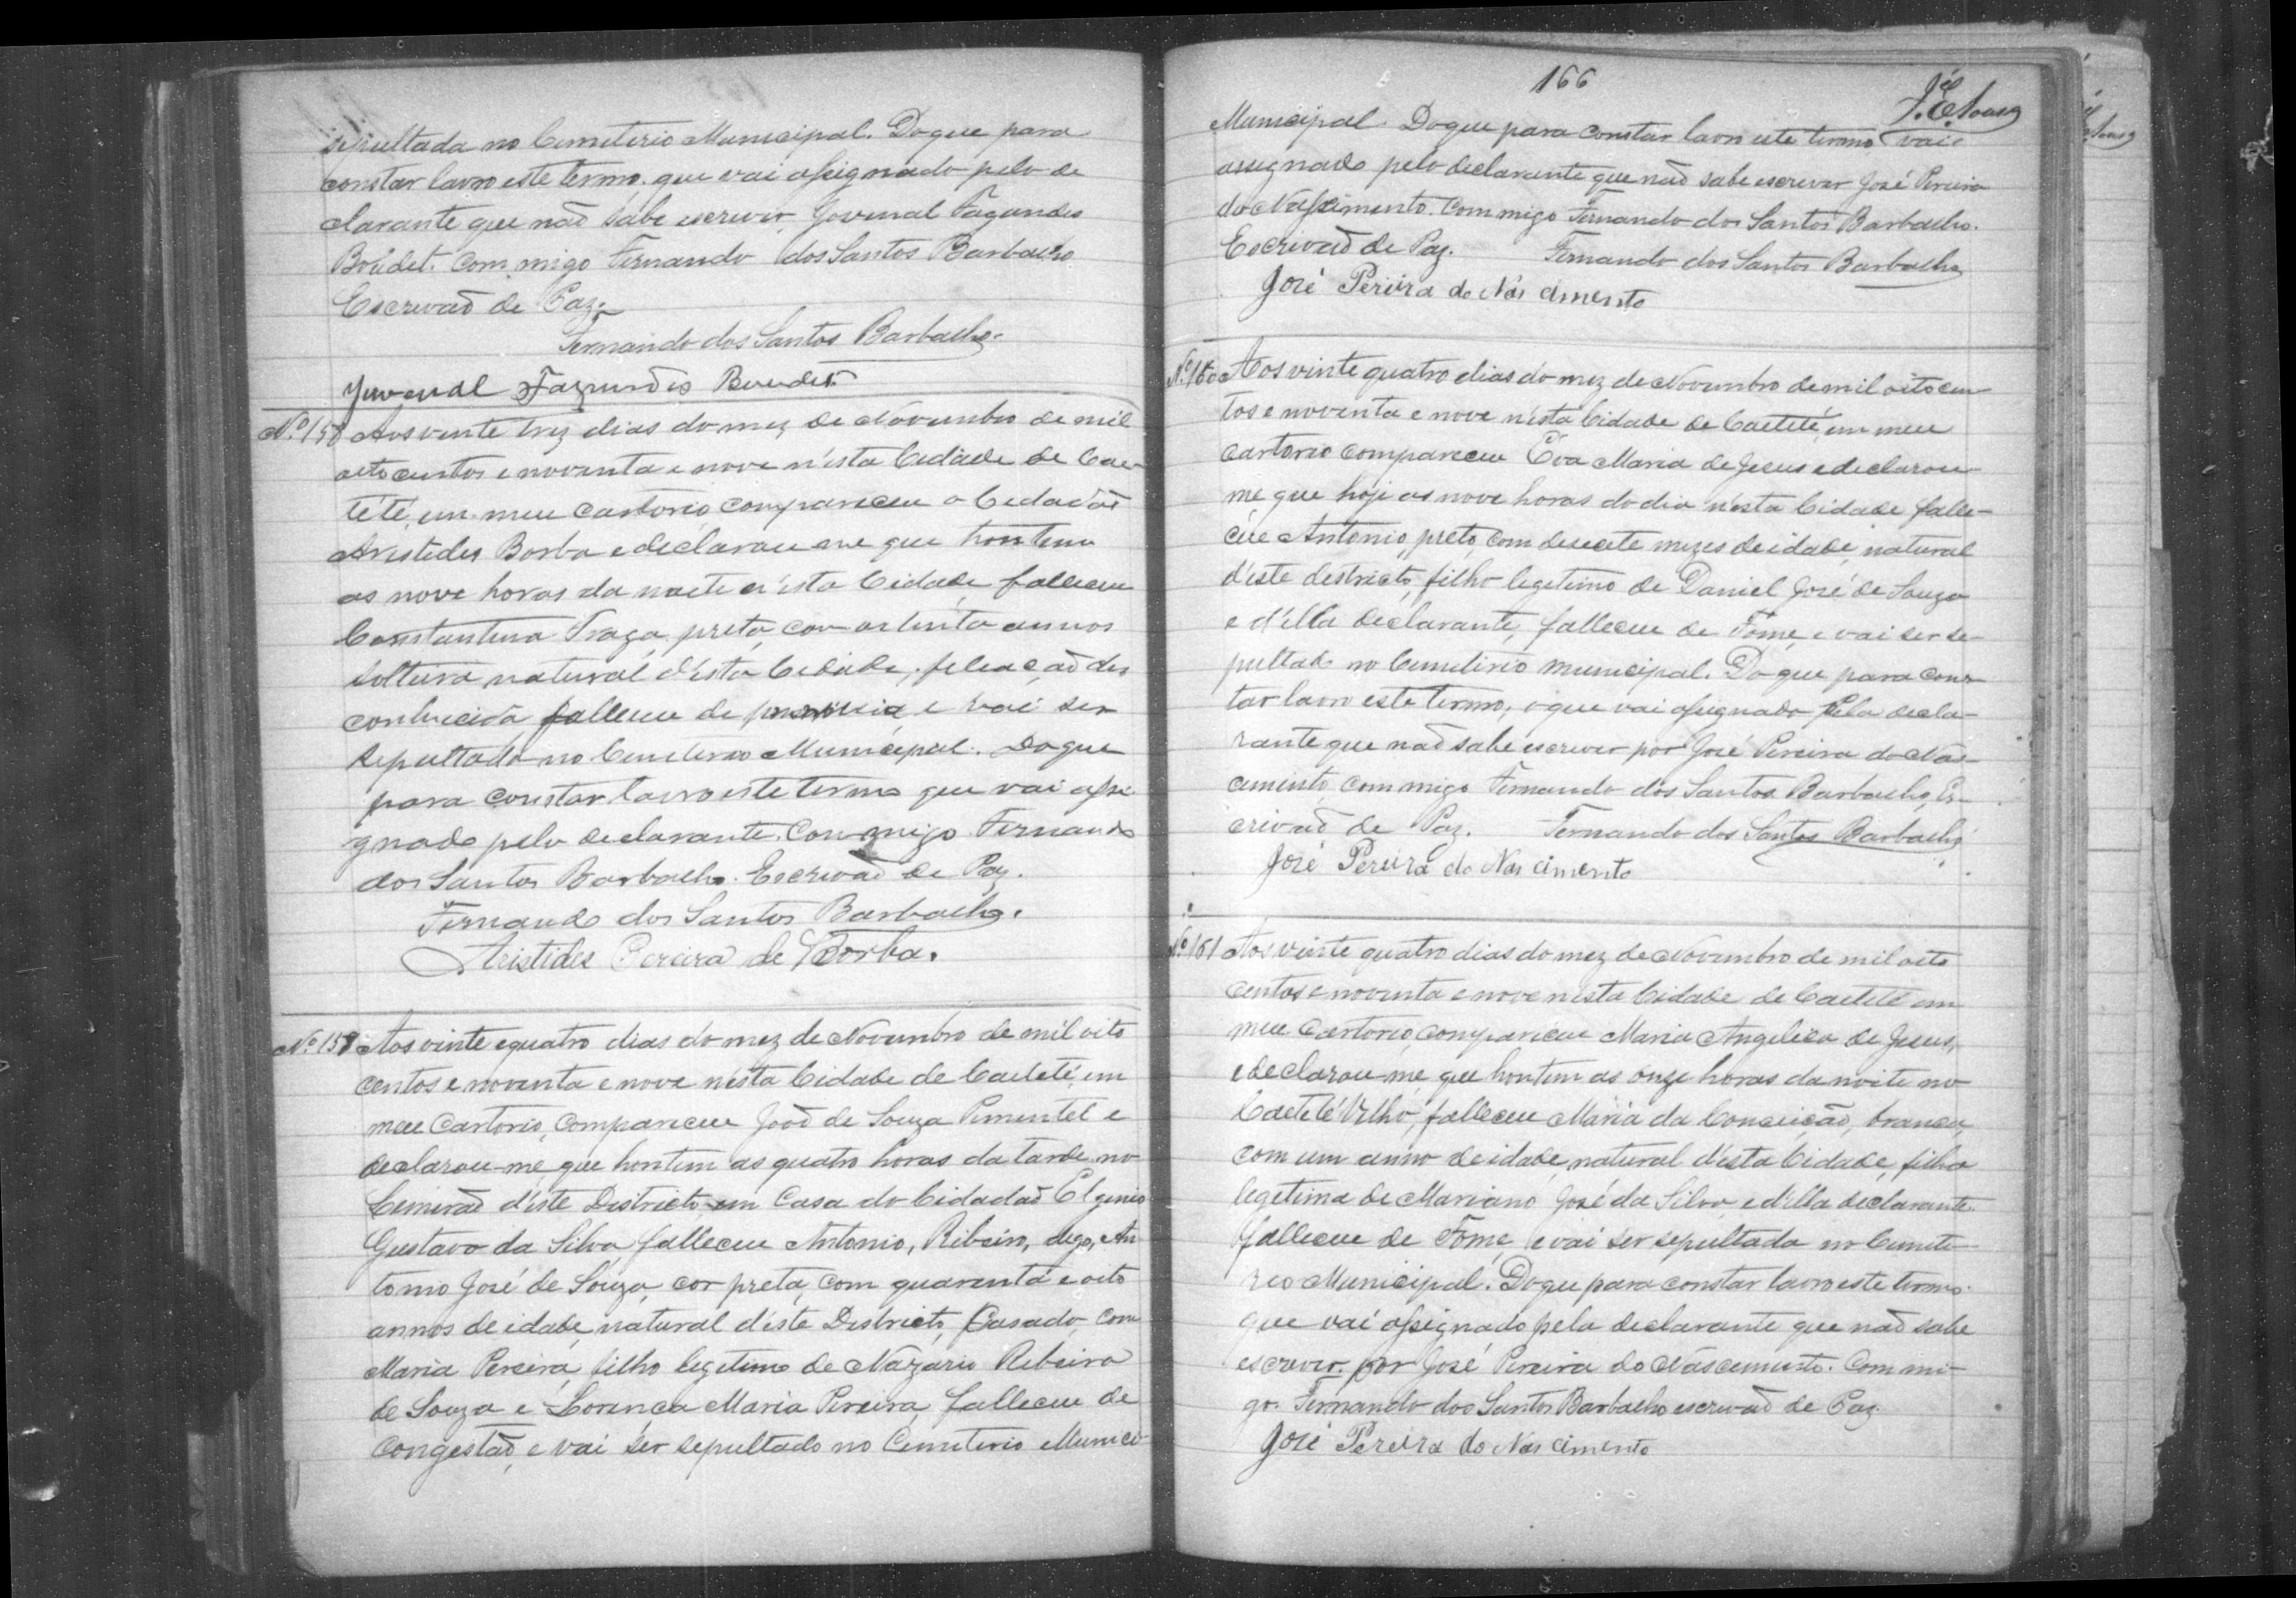 sepultada no Cemiterio Municipal. Do que para
constar lavro este termo. que vai assignado pelo de
clarante que não sabe escrever, Jovenal Fagundes
Boudet. Commigo Fernando dos Santos Barbalho
Escrivão de Paz.
Fernando dos Santos Barbalho.
Juvenal Fagundes Boudet
Nº 158 Aos vente trez dias do mez de Novembro de mil
oito centos e noventa e nove n'esta Cidade de Cae-
tété, em meu cartorio compareceu o Cidadão
Aristides Borba e declarou me que hontem
as nove horas da noite n'esta Cidade falleceu
Constantina Fraga, preta, com oitenta annos
solteira natural d'esta Cidade, filiação des
conhecida falleceu de e vai ser
sepultada no Cemiterio Municipal. Do que
para constar lavro este termo que vai assi
gnado pelo declarante. Commigo Fernando
dos Santos Barbalho Escrivão de Paz.
Fernando dos Santos Barbalho.
Aristides Pereira de Borba.
Nº 159 Aos vinte e quatro dias do mez de Novembro de mil oito
centos e noventa e nove nésta Cidade de Caeteté, em
meu Cartorio, compareceu João de Souza Pimentel e
declarou-me que hontem as quatro horas da tarde no
d'éste Districto em Casa do Cidadão Elginio
Gustavo da Silva falleceu Antonio, Ribeiro, digo, An
tonio José de Souza, cor preta, com quarenta e oito
annos de idade, natural d'éste Districto, Casado, com
Maria Pereira, filho legetimo de Nazario Ribeiro
de Souza e Lorença Maria Pereira, falleceu de
Congestão, e vai ser sepultado no Cemiterio Munici-
166
J. E. Sousa
Municipal. Do que para constar lavro este termo vai
assignado pelo declarante que não sabe escrever José Pereira
do Nascimento. Commigo Fernando dos Santos Barbalho.
Escrivão de Paz. Fernando dos Santos Barbalho
José Pereira do Nascimento
Nº 160 Aos vinte quatro dias do mez de Novembro de mil oitocen
tos e noventa e nove n'ésta Cidade de Caeteté, em meu
cartorio compareceu Éva Maria de Jesus e declarou-
me que hoje as nove horas do dia n'ésta Cidade falle-
ceu Antonio, preto, com desecete mezes de idade, natural
d'éste destricto, filho legetimo de Daniel José de Souza
e d'élla declarante, falleceu de Fome, e vai ser se-
pultado no Cemiterio municipal. Do que para cons-
tar lavro este termo, o que vai assignado pela decla-
rante que não sabe escrever por José Pereira do Nas-
cimento, commigo Fernando dos Santos Barbalho, Es-
crivão de Paz. Fernando dos Santos Barbalho
José Pereira do Nascimento
Nº 161 Aos vinte quatro dias do mez de Novembro de mil oito
centos e noventa e nove nésta Cidade de Caeteté em
meu Cartorio, compareceu Maria Angelica de Jesus,
e declarou-me que hontem as onze horas da noite no
Caeteté Velho, falleceu Maria da Conceição, branca,
com um anno de idade, natural d'ésta Cidade, filha
legetima de Mariano José da Silva, e d'élla declarante.
falleceu de Fome, e vai ser sepultada no Cemite-
rio Municipal. Do que para constar lavro este termo.
que vai assignado pela declarante que não sabe
escrever. por José Pereira do Nascimento. Commi-
go. Fernando dos Santos Barbalho escrivão de Paz.
José Pereira do Nascimento